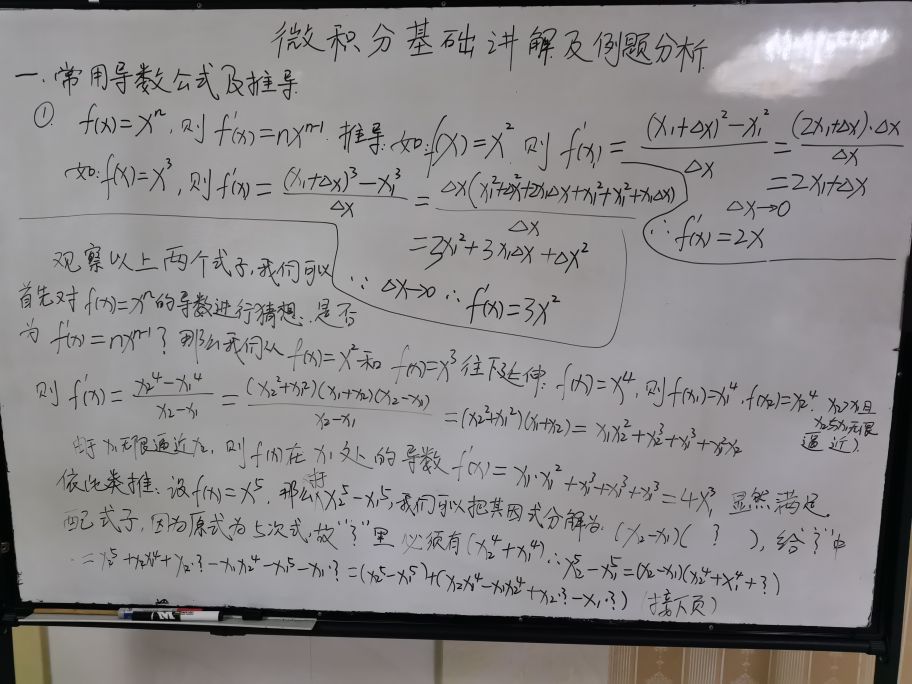 微积分基础讲解及例题分析
一.常用导数公式及推导
① f(x)=xⁿ,则f'(x)=nxⁿ⁻¹ 推导:如:f(x)=x²,则f'(x)=((x₁+Δx)²-x₁²)/Δx=((2x₁+Δx)·Δx)/Δx
=2x₁+Δx
Δx→0
∴f'(x)=2x
如:f(x)=x³,则f'(x)=((x₁+Δx)³-x₁³)/Δx=Δx(x₁²+Δx²+2x₁Δx+x₁²+x₁²+x₁Δx)/Δx
=3x₁²+3x₁Δx+Δx²
∵Δx→0 ∴f'(x)=3x²
观察以上两个式子,我们可以
首先对f(x)=xⁿ的导数进行猜想:是否
为f'(x)=nxⁿ⁻¹?那么我们从f(x)=x²和f(x)=x³往下延伸:f(x)=x⁴,则f(x₁)=x₁⁴,f(x₂)=x₂⁴.x₂>x₁且
x₂与x₁无限
逼近).
则f'(x)=(x₂⁴-x₁⁴)/(x₂-x₁)=((x₂²+x₁²)(x₁+x₂)(x₂-x₁))/(x₂-x₁)=(x₂²+x₁²)(x₁+x₂)=x₁x₂²+x₂³+x₁³+x₁²x₂
由于x₁无限逼近x₂,则f(x)在x₁处的导数f'(x)=x₁·x₁²+x₁³+x₁³+x₁³=4x³,显然满足
依此类推:设f(x)=x⁵,那么对x₂⁵-x₁⁵,我们可以把其因式分解为:(x₂-x₁)( ? ),给"?"中
配己式子,因为原式为5次式,故"?"里必须有(x₂⁴+x₁⁴)∴x₂⁵-x₁⁵=(x₂-x₁)(x₂⁴+x₁⁴+?)
=x₂⁵+x₂x₁⁴+x₂·?-x₁x₂⁴-x₁⁵-x₁·?=(x₂⁵-x₁⁵)+(x₂x₁⁴-x₁x₂⁴+x₂·?-x₁·?)(接下页)